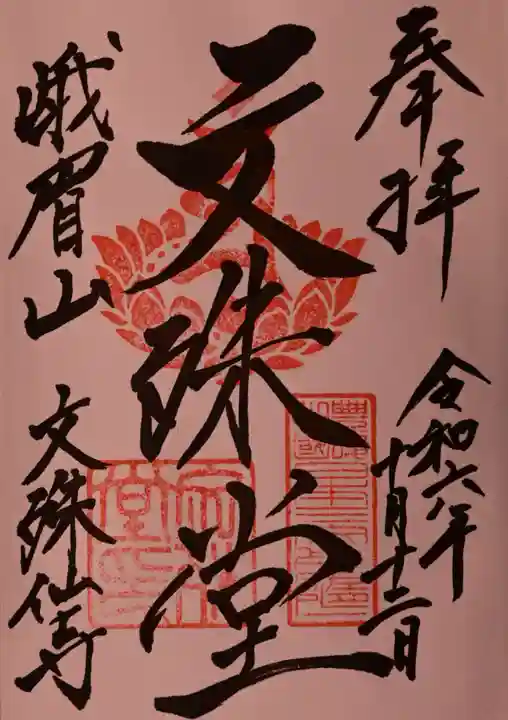 奉拝
令和六年
十月十二日
文殊堂
峨眉山
文殊仙寺